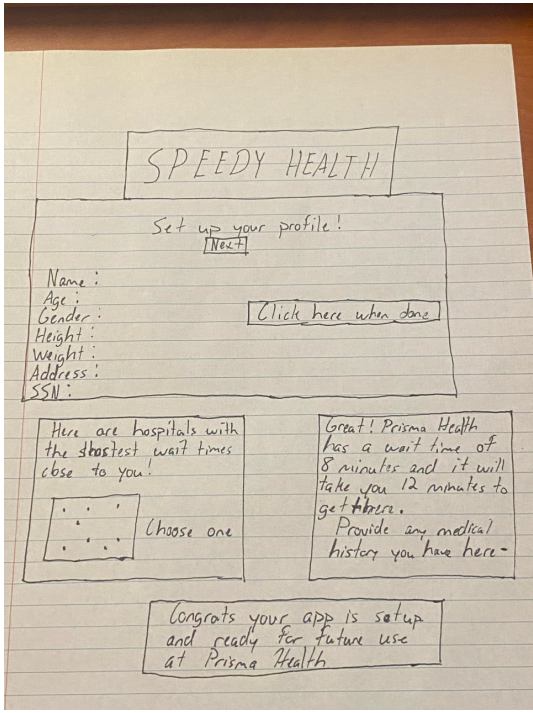 SPEEDY HEALTH
Set up your profile!
Next
Name :
Age :
Gender :
Height :
Weight :
Address :
SSN :
Click here when done
Here are hospitals with
the shortest wait times
close to you!
Choose one
Great! Prisma Health
has a wait time of
8 minutes and it will
take you 12 minutes to
get there.
Provide any medical
history you have here-
Congrats your app is setup
and ready for future use
at Prisma Health